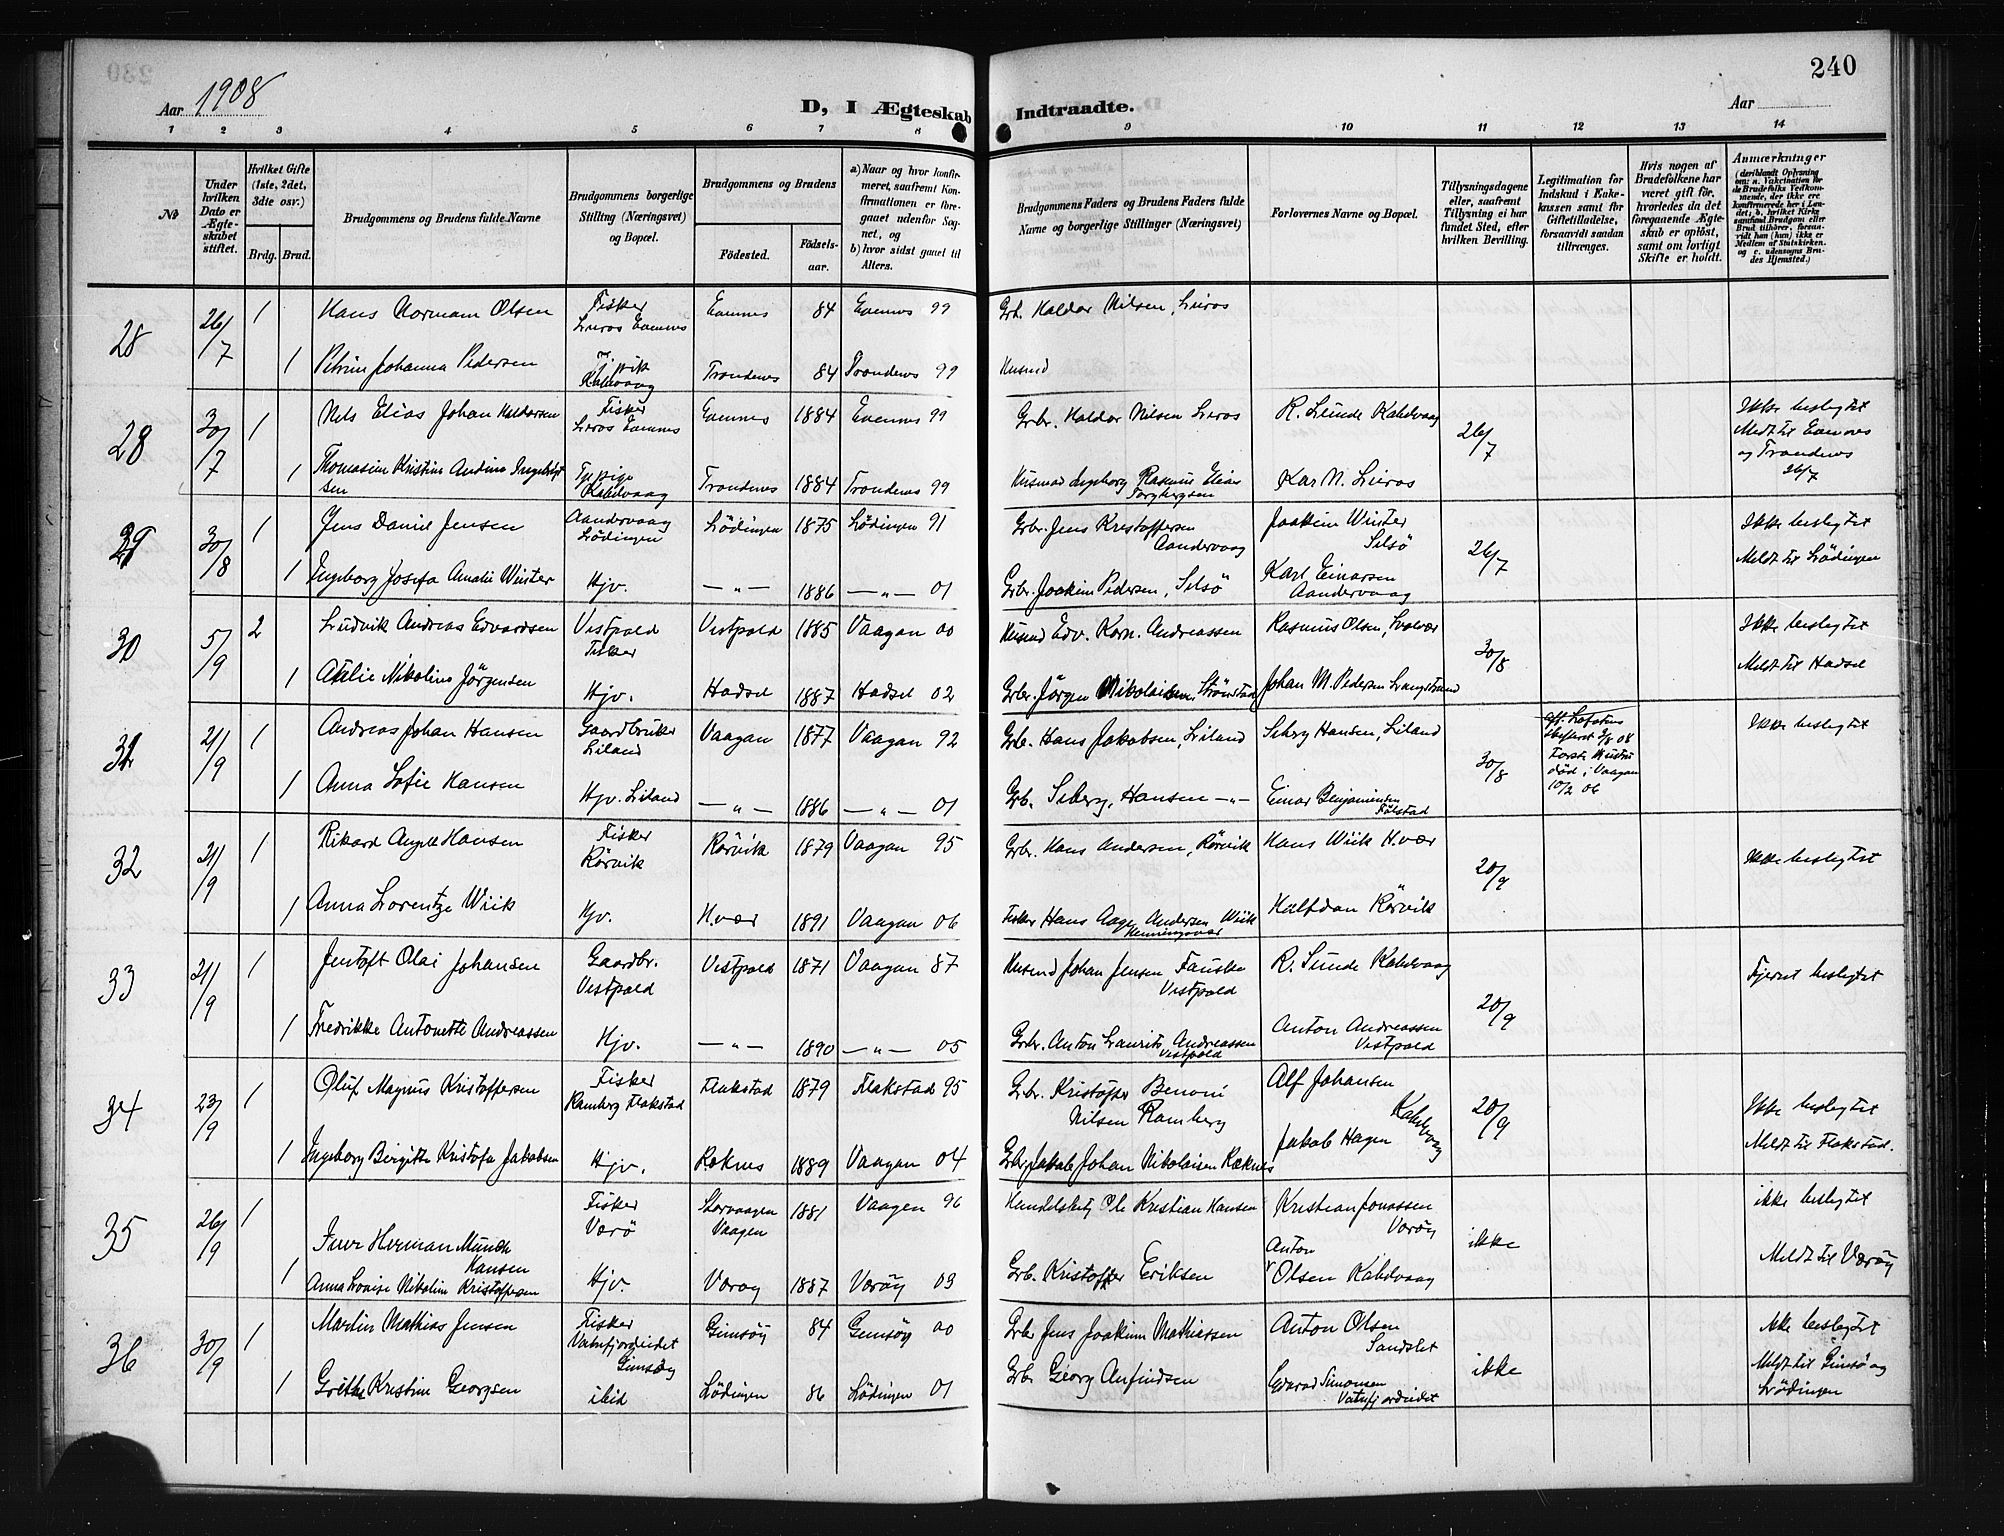 240
Aar 1908
D, I Ægteskab Indtraadte.
Aar
1 2 3 4 5 6 7 8 9 10 11 12 13 14
No
Under hvilken Dato er Ægteskabet stiftet.
Hvilket Gifte (1ste, 2det, 3die osv.)
Brdg. Brud.
Brudgommens og Brudens fulde Navne
Brudgommens borgerlige Stilling (Næringsvei) og Bopæl.
Brudgommens og Brudens
Födested. Födsels-aar.
a) Naar og hvor konfirmeret, saafremt Konfirmationen er foregaaet udenfor Sognet, og
b) hvor sidst gaaet til Alters.
Brudgommens Faders og Brudens Faders fulde Navne og borgerlige Stillinger (Næringsvei)
Forlovernes Navne og Bopæl.
Tillysningsdagene eller, saafremt Tillysning ei har fundet Sted, efter hvilken Bevilling.
Legitimation for Indskud i Enkekassen samt for Giftetilladelse, forsaavidt saadan tiltrænges.
Hvis nogen af Brudefolkene har været gift för, hvorledes da det foregaaende Ægteskab er oplöst, samt om lovligt Skifte er holdt.
Anmærkninger
28 26/7 1 Hans Normann Olsen Fisker Evenes 84 Evenes 99 Grb. Haldor Nilsen, Lieros
Lieros Evenes
1 Petrine Johanna Pedersen Kabelvaag Trondenes 84 Trondenes 99 Husmd
28 30/7 1 Nels Elias Johan Haldorsen Fisker Evenes 1884 Evenes 99 Grbr. Haldor Nilsen Lieros R. Sunde Kabelvaag 26/7 Ikke beslegtet
Lieros Evenes Meldt til Evenes
og Trondenes
26/7
1 Thomasine Kristine Andine Ingebrigtsen Tjpige Kabelvaag Trondenes 1884 Trondenes 99 Husmand Ingeborg Rasmus Elias Torgbergsen Karl N. Lieros
29 30/8 1 Jens Daniel Jensen Aandervaag Lödingen Lödingen 1875 Lödingen 91 Grbr. Jens Kristoffersen Aandervaag Joakim Winter Selsö 26/7 Ikke beslegtet
Meldt til Lödingen
1 Ingeborg Josefa Amalie Winter Hjv. —„— 1886 —„— 01 Grbr. Joakim Pedersen, Selsö Karl Einarsen Aandervaag
30 5/9 2 Ludvik Andreas Edvardsen Vestpold Fisker Vestpold 1885 Vaagan 00 Husmd Edv. Korn. Andreassen Rasmus Olsen, Svolvær 30/8 Ikke beslegtet
Meldt til Hadsel
1 Atalie Nikoline Jörgensen Hjv. Hadsel 1887 Hadsel 02 Grbr. Jörgen Nikolaisen Strönstad Johan M. Pedersen Langstrand
31 21/9 1 Andreas Johan Hansen Gaardbruker Liland Vaagan 1877 Vaagan 92 Grb. Hans Jakobsen, Liland Siberg Hansen, Liland 30/8 Ikke beslegtet
Forste Hustru
död i Vaagan
10/2 06
1 Anna Sofie Hansen Hjv. Liland —„— 1886 —„— 01 Grb. Siberg Hansen —„— Einar Benjaminsen
32 21/9 1 Rikard Angell Hansen Fisker Rörvik Rörvik 1879 Vaagan 95 Grbr. Hans Andersen, Rörvik Hans Wiik H.vær 20/9 Ikke beslegtet
1 Anna Lorentze Wiik Hjv. H.vær 1891 Vaagan 06 Fisker Hans Aage Andersen Wiik Henningsvær Halfdan Rörvik
33 21/9 1 Jentoft Olai Johansen Gaardbr. Vestpold Vestpold 1871 Vaagan 87 Husmd Johan Jensen Fauske Vestpold R. Sunde Kabelvaag 20/9 Fjernt beslegtet
1 Fredrikke Antonette Andreassen Hjv. —„— 1890 —„— 05 Grbr. Anton Laurits Andreassen Vestpold Anton Andreassen Vestpold
34 23/9 1 Oluf Magnus Kristoffersen Fisker Ramberg Flakstad Flakstad 1879 Flakstad 95 Grbr. Kristoffer Benoni Nilsen Ramberg Alf Johansen Kabelvaag 20/9 Ikke beslegtet
Meldt til Flakstad.
1 Ingeborg Birgitte Kristofa Jakobsen Hjv. Reknes 1889 Vaagan 04 Grbr. Jakob Johan Nikolaisen Reknes Jakob Hagen
35 26/9 1 Iver Herman Munch Hansen Fisker Værö Storvaagen Vaagen 1881 Vaagen 96 Handelsbetj Ole Kristian Hansen Kristian Jonassen Værøy ikke ikke beslegtet
Meldt til Værøy
1 Anna Lovise Nikoline Kristoffersen Hjv. Værøy 1887 Værøy 03 Grb. Kristoffer Eriksen Anton Olsen Kabelvaag
36 30/9 1 Martin Mathias Jensen Fisker Vatnfjordeidet Gimsøy Gimsøy 84 Gimsøy 00 Grbr Jens Joakim Mathiassen Anton Olsen Sandslet ikke Ikke beslegtet
Meldt til Gimsö og
Lödingen
1 Grethe Kristine Georgsen ibid Lödingen 86 Lödingen 01 Grb. Georg Anfindsen Edvard Simonsen Vatnfjordeidet